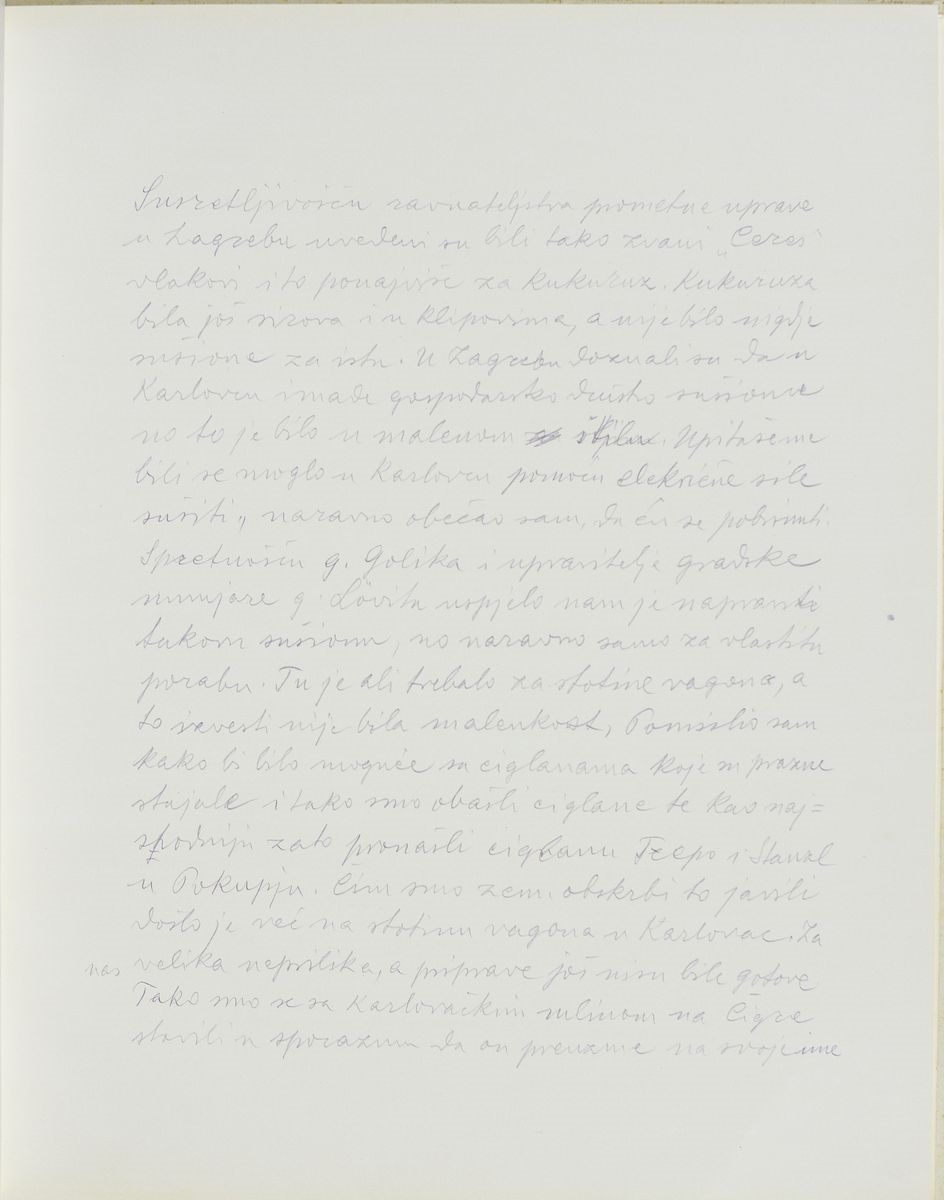 Susretljivošću ravnateljstva prometne uprave
u Zagrebu uvedeni su bili tako zvani „Ceres“
vlakovi i to ponajviše za kukuruz. Kukuruza
bila još sirova i u klipovima, a nije bilo nigdje
sušione za istu. U Zagrebu doznali su da u
Karlovcu imade gospodarsko društvo sušionu
no to je bilo u malenom štilu. Upitaše me
bili se moglo u Karlovcu pomoću elekrične sile
sušiti, naravno obećao sam, da ću se pobrinuti.
Spretnošću g. Golika i upravitelja gradske
munjare g. Lövita uspjelo nam je napraviti
takovu sušionu, no naravno samo za vlastitu
porabu. Tu je ali trebalo za stotine vagona, a
to izvesti nije bila malenkost, Pomislio sam
kako bi bilo moguće sa ciglanama koje su prazne
stajale i tako smo obašli ciglane te kao naj=
shodniju zato pronašli ciglanu Frepo i Stanzl
u Pokupju. Čim smo zem. obskrbi to javili
došlo je već na stotinu vagona u Karlovac. Za
nas velika neprilika, a priprave još nisu bile gotove
Tako smo se sa Karlovačkim mlinom na
stavili u sporazum da on preuzme na svoje ime